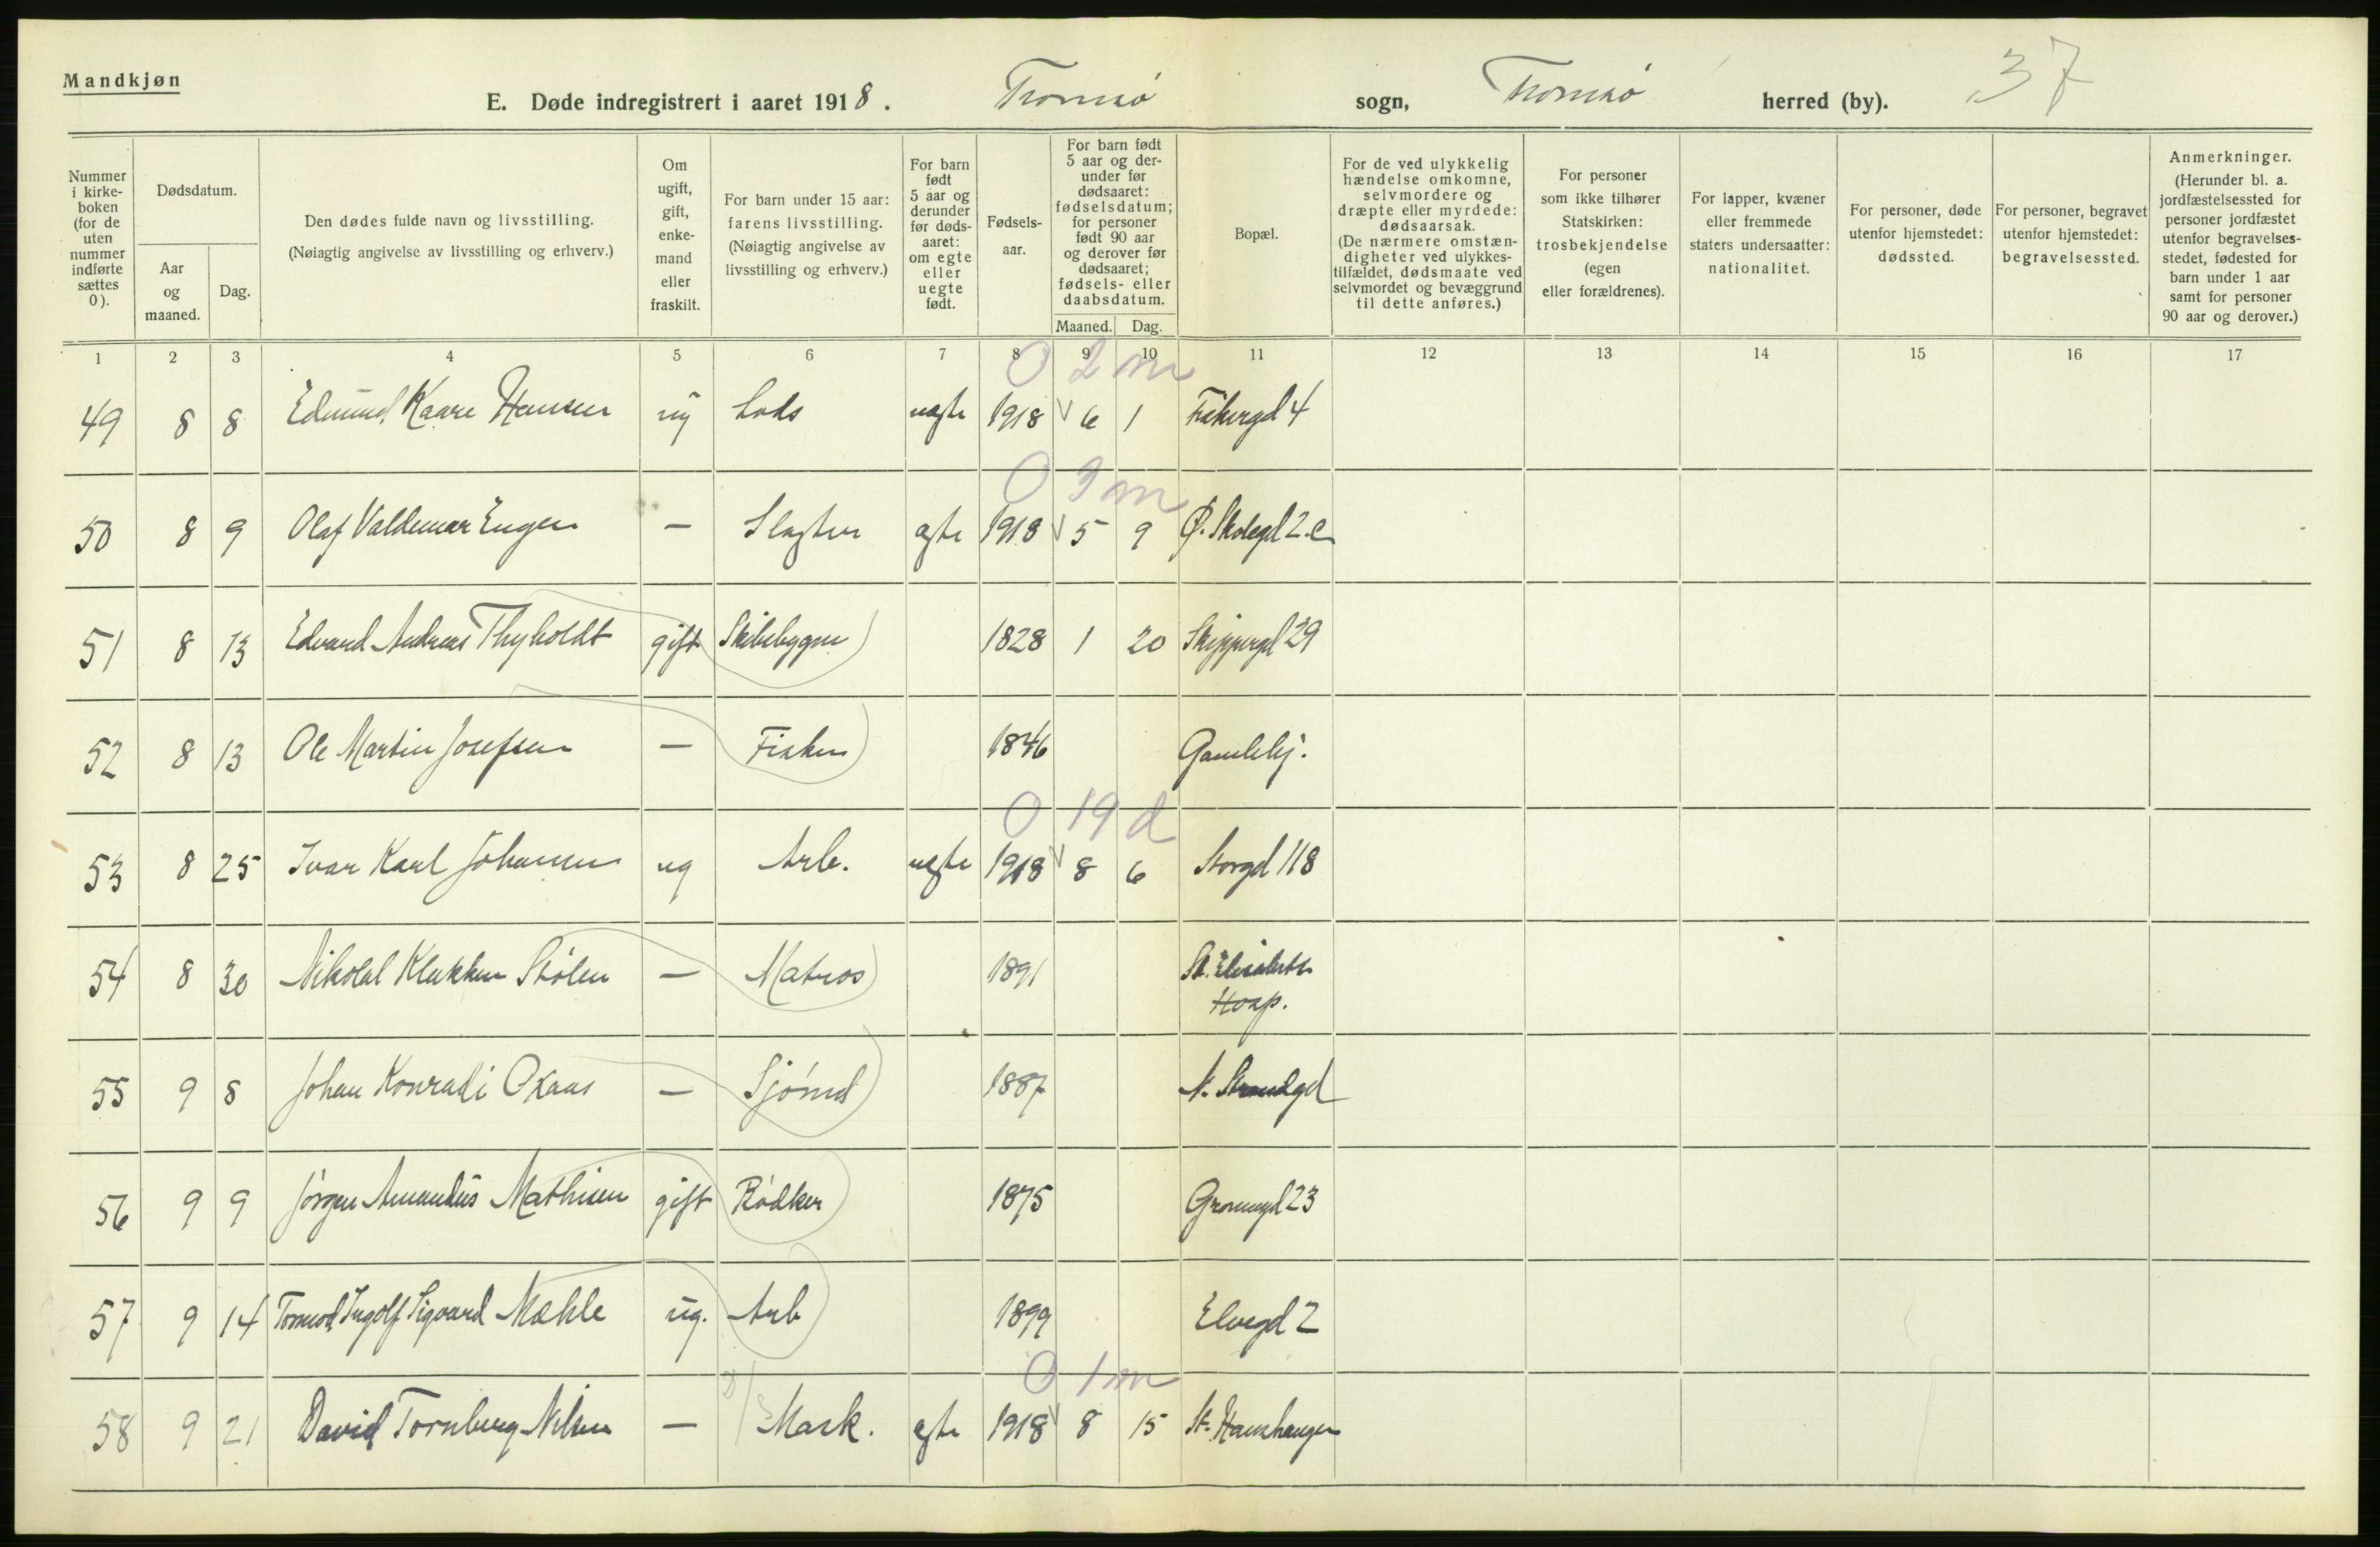 Mandkjøn
E. Døde indregistrert i aaret 1918. Tromsø sogn, Tromsø herred (by). 37
Nummer i kirke-boken (for de uten nummer indførte sættes 0).
Dødsdatum.
Aar og maaned.
Dag.
Den dødes fulde navn og livsstilling.
(Nøiagtig angivelse av livsstilling og erhverv.)
Om ugift, gift, enke-mand eller fraskilt.
For barn under 15 aar: farens livsstilling.
(Nøiagtig angivelse av livsstilling og erhverv.)
For barn født 5 aar og derunder før døds-aaret: om egte eller uegte født.
Fødsels-aar.
For barn født 5 aar og der-under før dødsaaret: fødselsdatum; for personer født 90 aar og derover før dødsaaret; fødsels- eller daabsdatum.
Maaned.
Dag.
Bopæl.
For de ved ulykkelig hændelse omkomne, selvmordere og dræpte eller myrdede: dødsaarsak. (De nærmere omstæn-digheter ved ulykkes-tilfældet, dødsmaate ved selvmordet og bevæggrund til dette anføres.)
For personer som ikke tilhører Statskirken: trosbekjendelse (egen eller forældrenes).
For lapper, kvæner eller fremmede staters undersaatter: nationalitet.
For personer, døde utenfor hjemstedet: dødssted.
For personer, begravet utenfor hjemstedet: begravelsessted.
Anmerkninger. (Herunder bl. a. jordfæstelsessted for personer jordfæstet utenfor begravelses-stedet, fødested for barn under 1 aar samt for personer 90 aar og derover.)
1 2 3 4 5 6 7 8 9 10 11 12 13 14 15 16 17
0 2 m
49 8 8 Edmund Kaare Hansen ug Lods uegte 1918 6 1 Fiskergd 4
0 3 m
50 8 9 Olaf Valdemar Engen — Slagter egte 1918 5 9 Ø. Skolegd 2 c
51 8 13 Edvard Andreas Thyholdt gift Skibsbygger 1828 1 20 Skippergd 29
52 8 13 Ole Martin Josefsen — Fisker 1846 Gamlehj.
0 19 d
53 8 25 Ivar Karl Johansen ug Arb. uegte 1918 8 6 Storgd 118
54 8 30 Nikolai Klakken Stølen — Matros 1891 St. Elisabeth
Hosp.
55 9 8 Johan Konradi Oxaas — Sjømd 1887 N. Strandgd
56 9 9 Jørgen Amandus Mathisen gift Bødker 1875 Grønnegd 23
57 9 14 Tormod Ingolf Sigvard Mæhle ug. Arb 1899 Elvegd 2
0 1 m
58 9 21 David Tornberg Nilsen — Mask. egte 1918 8 15 St. Hanshaugen